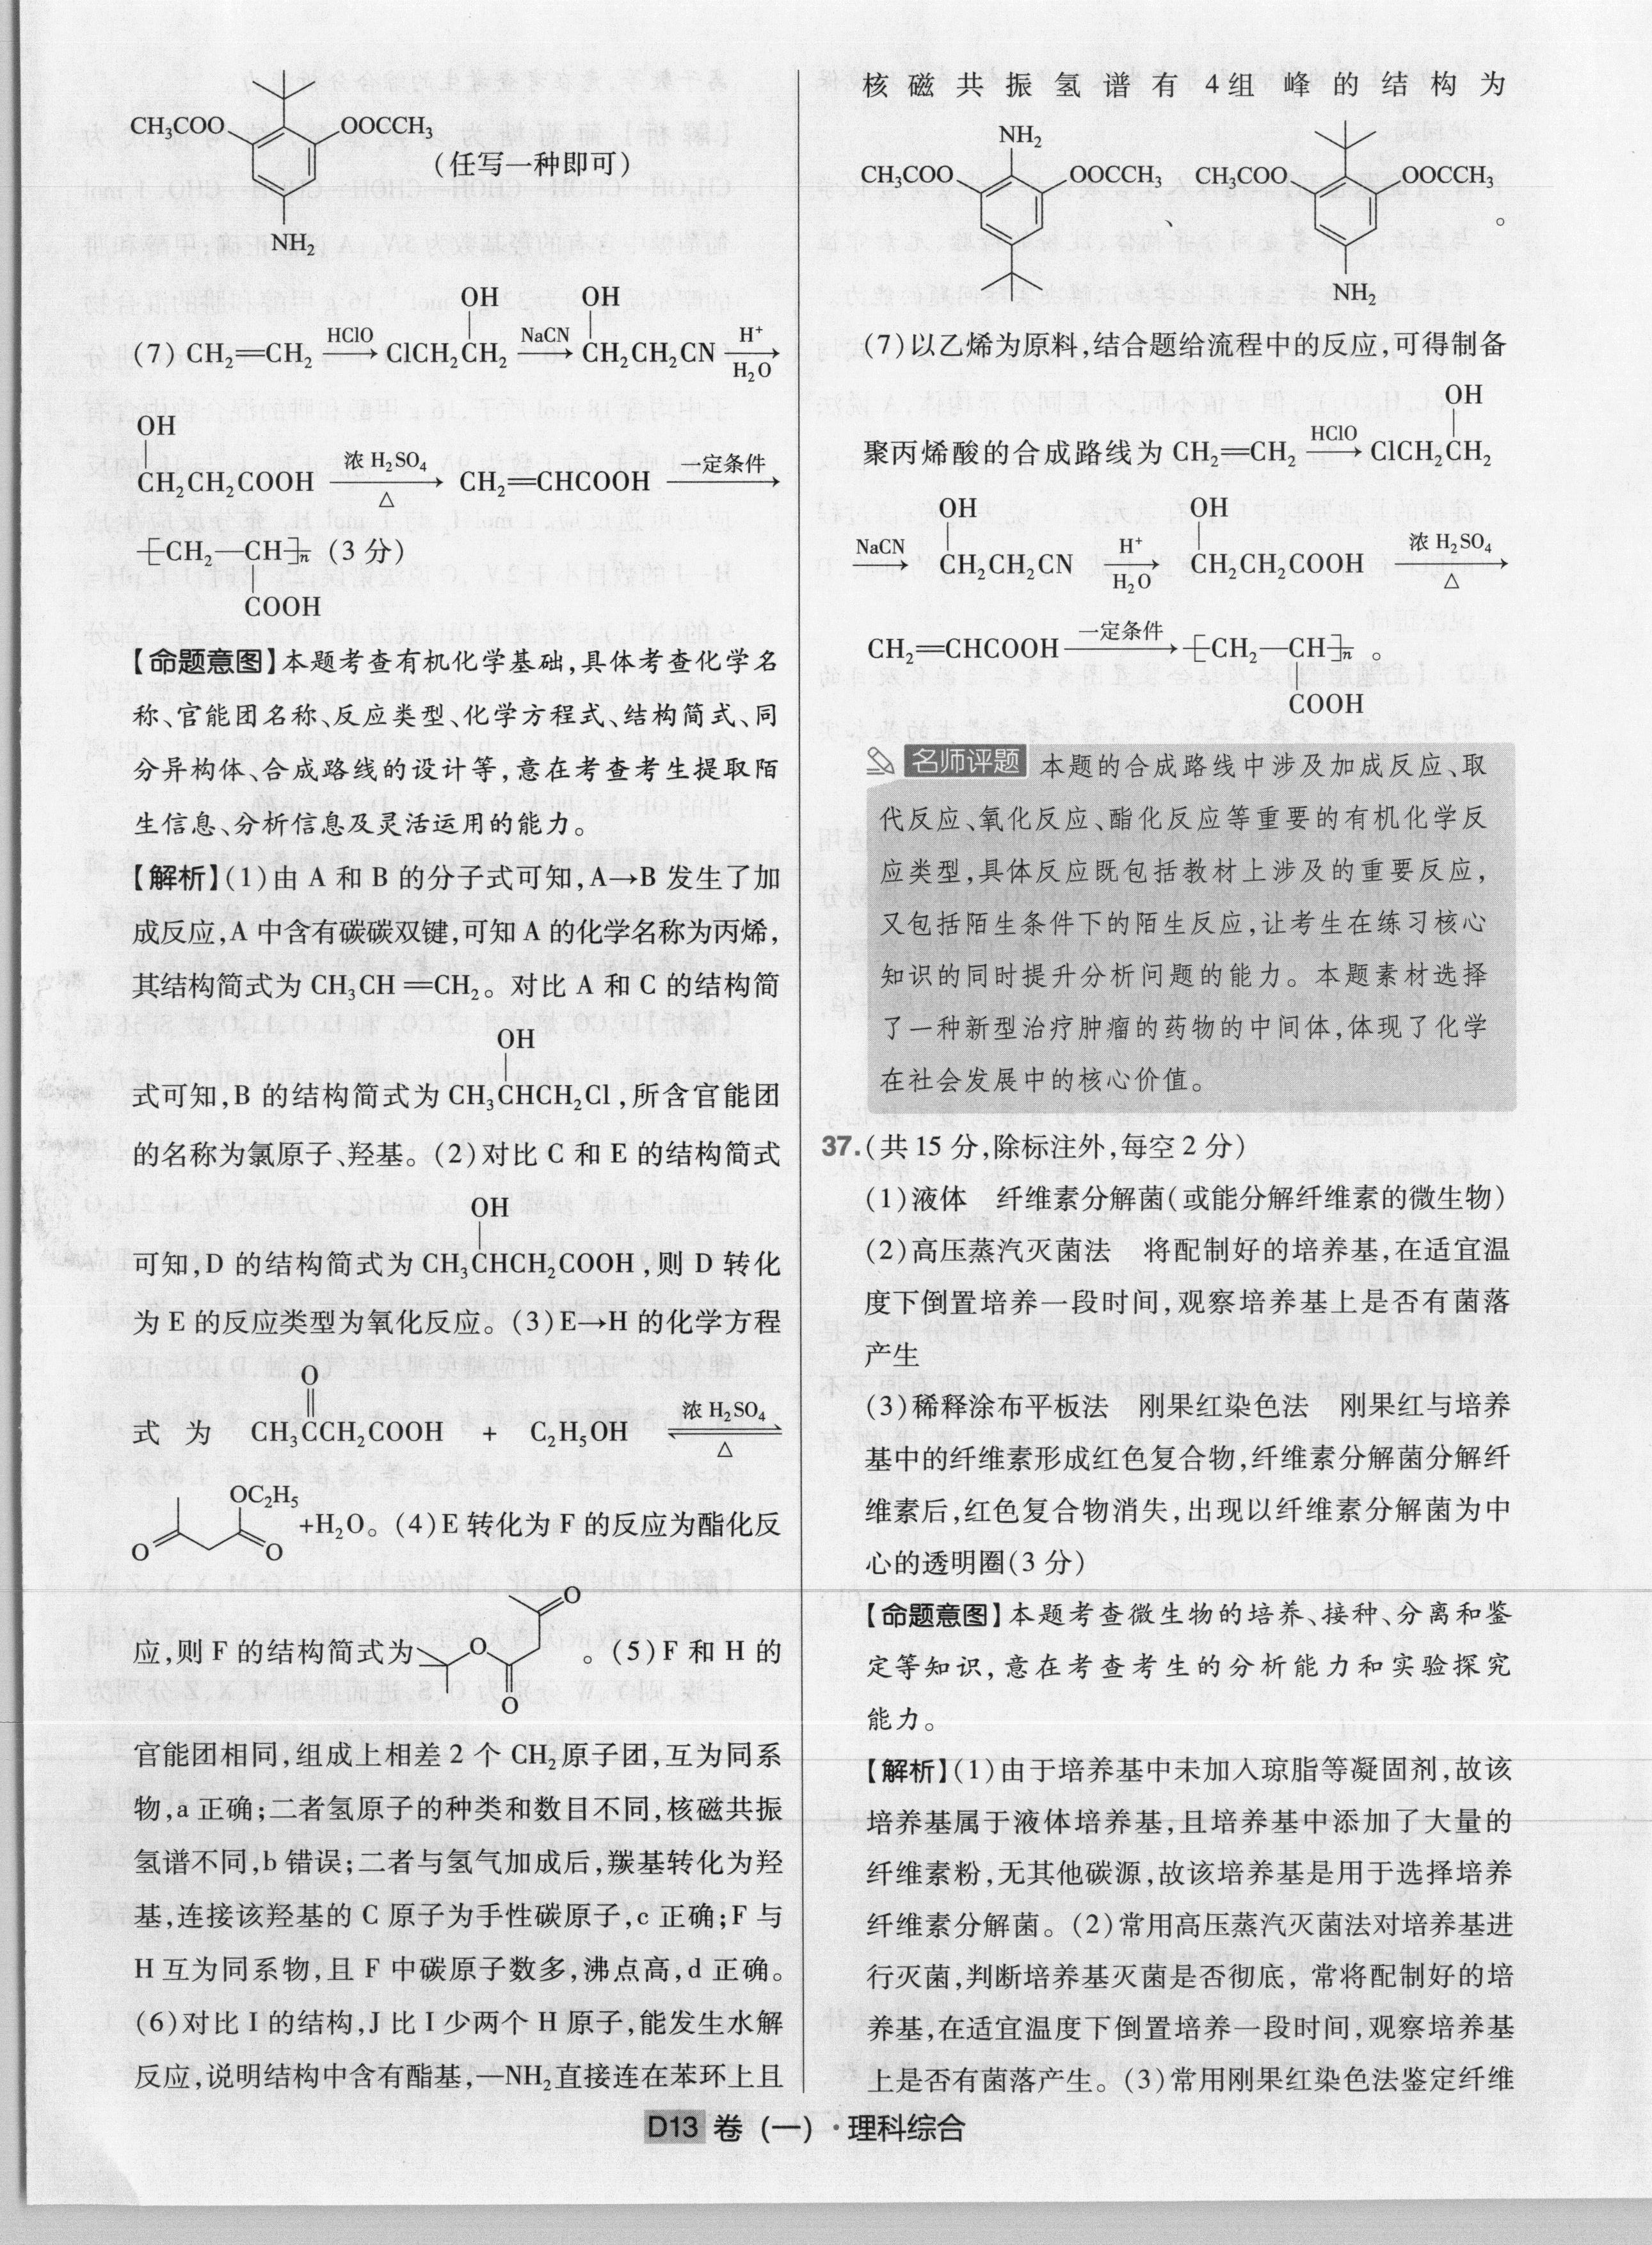 CH₃COO OOCCH₃
(任写一种即可)
NH₂
OH OH
(7) CH₂=CH₂ —HClO→ ClCH₂CH₂ —NaCN→ CH₂CH₂CN —H⁺/H₂O→
OH
CH₂CH₂COOH —浓 H₂SO₄/△→ CH₂=CHCOOH —一定条件→
⁅CH₂—CH⁆ₙ (3 分)
COOH
【命题意图】本题考查有机化学基础,具体考查化学名
称、官能团名称、反应类型、化学方程式、结构简式、同
分异构体、合成路线的设计等,意在考查考生提取陌
生信息、分析信息及灵活运用的能力。
【解析】(1)由 A 和 B 的分子式可知,A→B 发生了加
成反应,A 中含有碳碳双键,可知 A 的化学名称为丙烯,
其结构简式为 CH₃CH=CH₂。对比 A 和 C 的结构简
OH
式可知,B 的结构简式为 CH₃CHCH₂Cl,所含官能团
的名称为氯原子、羟基。(2)对比 C 和 E 的结构简式
OH
可知,D 的结构简式为 CH₃CHCH₂COOH,则 D 转化
为 E 的反应类型为氧化反应。(3)E→H 的化学方程
O
式为 CH₃CCH₂COOH + C₂H₅OH ⇌ 浓 H₂SO₄/△
OC₂H₅
O O +H₂O。(4)E 转化为 F 的反应为酯化反
O
应,则 F 的结构简式为 O 。(5)F 和 H 的
O
官能团相同,组成上相差 2 个 CH₂原子团,互为同系
物,a 正确;二者氢原子的种类和数目不同,核磁共振
氢谱不同,b 错误;二者与氢气加成后,羰基转化为羟
基,连接该羟基的 C 原子为手性碳原子,c 正确;F 与
H 互为同系物,且 F 中碳原子数多,沸点高,d 正确。
(6)对比 I 的结构,J 比 I 少两个 H 原子,能发生水解
反应,说明结构中含有酯基,—NH₂直接连在苯环上且
核磁共振氢谱有 4组 峰的结构为
NH₂
CH₃COO OOCCH₃ 、 CH₃COO OOCCH₃ 。
NH₂
(7)以乙烯为原料,结合题给流程中的反应,可得制备
OH
聚丙烯酸的合成路线为 CH₂=CH₂ —HClO→ ClCH₂CH₂
OH OH
—NaCN→ CH₂CH₂CN —H⁺/H₂O→ CH₂CH₂COOH —浓 H₂SO₄/△→
CH₂=CHCOOH —一定条件→ ⁅CH₂—CH⁆ₙ 。
COOH
名师评题 本题的合成路线中涉及加成反应、取
代反应、氧化反应、酯化反应等重要的有机化学反
应类型,具体反应既包括教材上涉及的重要反应,
又包括陌生条件下的陌生反应,让考生在练习核心
知识的同时提升分析问题的能力。本题素材选择
了一种新型治疗肿瘤的药物的中间体,体现了化学
在社会发展中的核心价值。
37.(共 15 分,除标注外,每空 2 分)
(1)液体 纤维素分解菌(或能分解纤维素的微生物)
(2)高压蒸汽灭菌法 将配制好的培养基,在适宜温
度下倒置培养一段时间,观察培养基上是否有菌落
产生
(3)稀释涂布平板法 刚果红染色法 刚果红与培养
基中的纤维素形成红色复合物,纤维素分解菌分解纤
维素后,红色复合物消失,出现以纤维素分解菌为中
心的透明圈(3 分)
【命题意图】本题考查微生物的培养、接种、分离和鉴
定等知识,意在考查考生的分析能力和实验探究
能力。
【解析】(1)由于培养基中未加入琼脂等凝固剂,故该
培养基属于液体培养基,且培养基中添加了大量的
纤维素粉,无其他碳源,故该培养基是用于选择培养
纤维素分解菌。(2)常用高压蒸汽灭菌法对培养基进
行灭菌,判断培养基灭菌是否彻底,常将配制好的培
养基,在适宜温度下倒置培养一段时间,观察培养基
上是否有菌落产生。(3)常用刚果红染色法鉴定纤维
D13 卷 (一)·理科综合